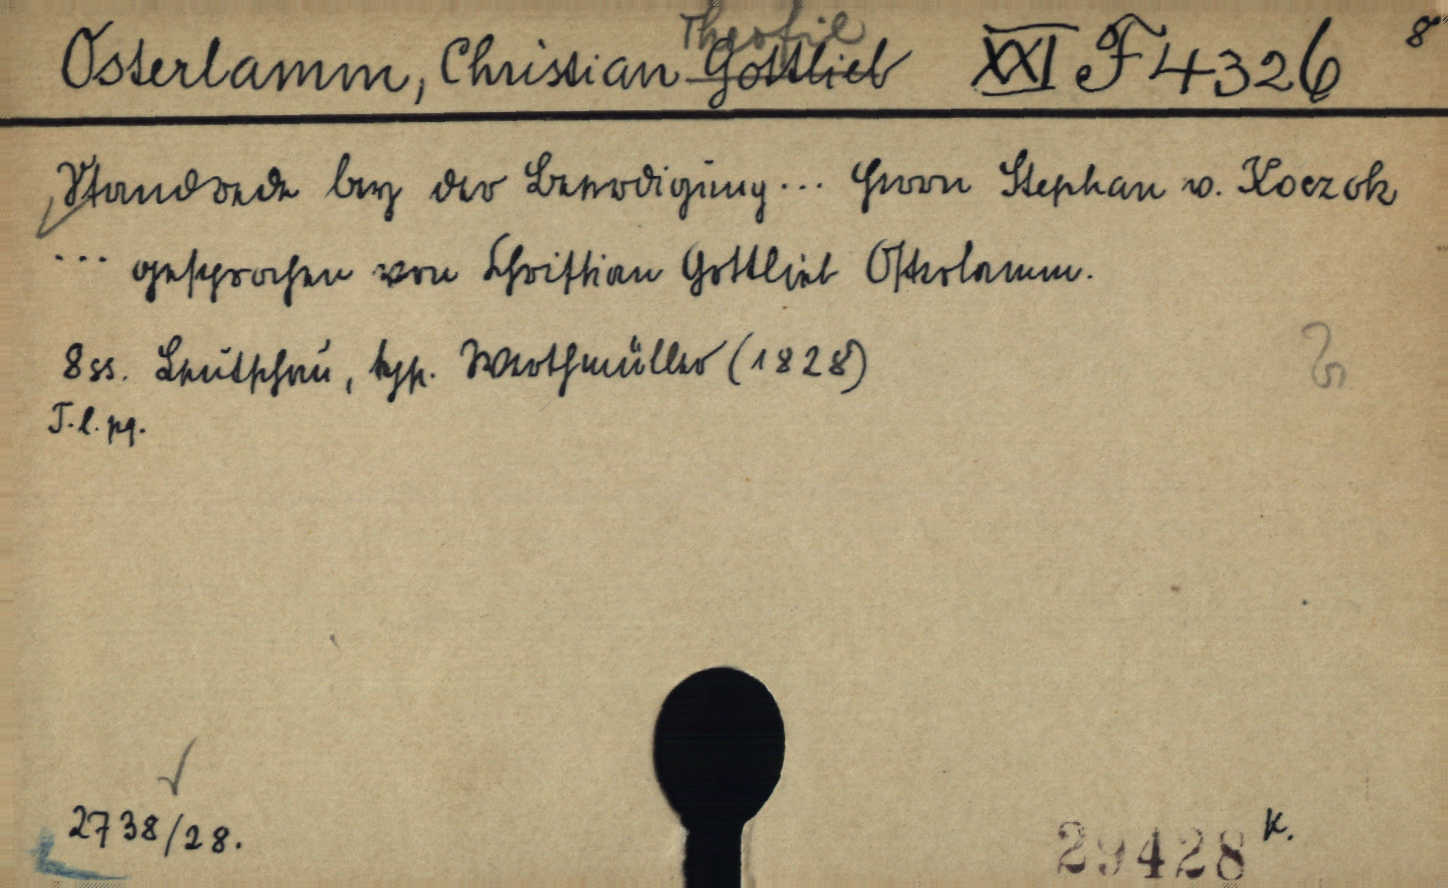 Theofil
Osterlamm, Christian Gottlieb XXI F 4326 8
Standrede bey der Beerdigung ... Herrn Stephan v. Koczok
... gesprochen von Christian Gottlieb Osterlamm.
8 ss. Leutschau, typ. Werthmüller (1828)
T. l. pg.
2738/28.
29428 K.